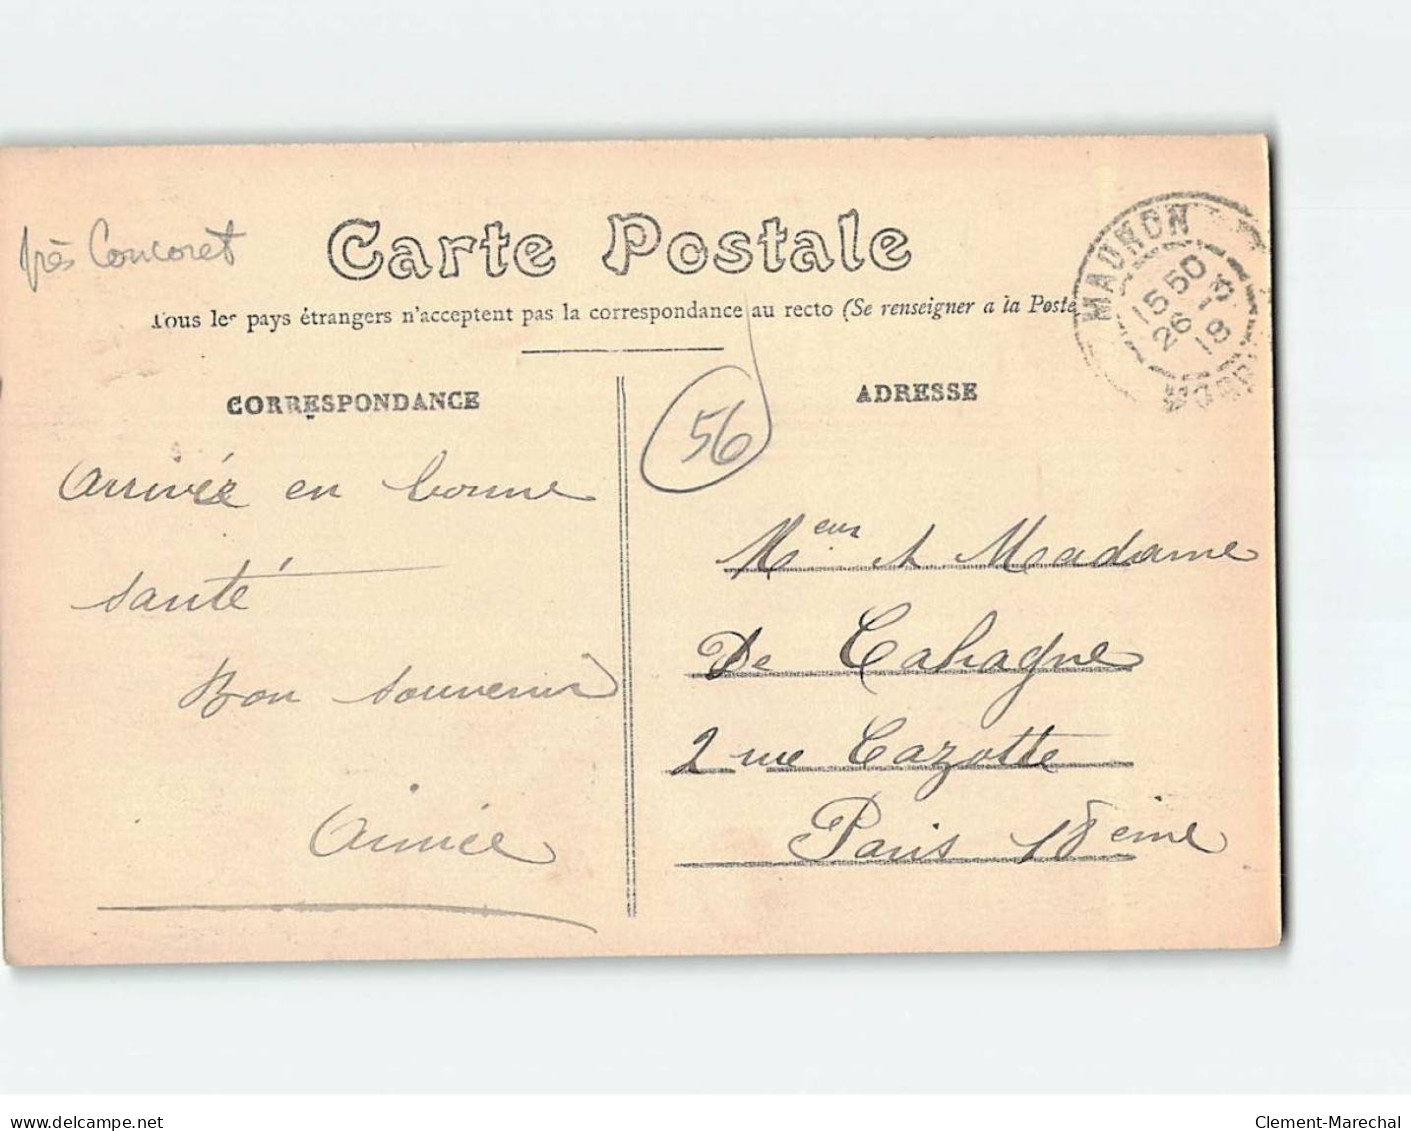 près Concoret
Carte Postale
Tous les pays étrangers n'acceptent pas la correspondance au recto (Se renseigner a la Poste
MAURON
15 50
26
18
CORRESPONDANCE
ADRESSE
56
Arrivée en bonne
santé
Bon souvenir
Aimée
Mr et Madame
De Cahagne
2 rue Cazotte
Paris 18eme
www.delcampe.net
Clement-Marechal